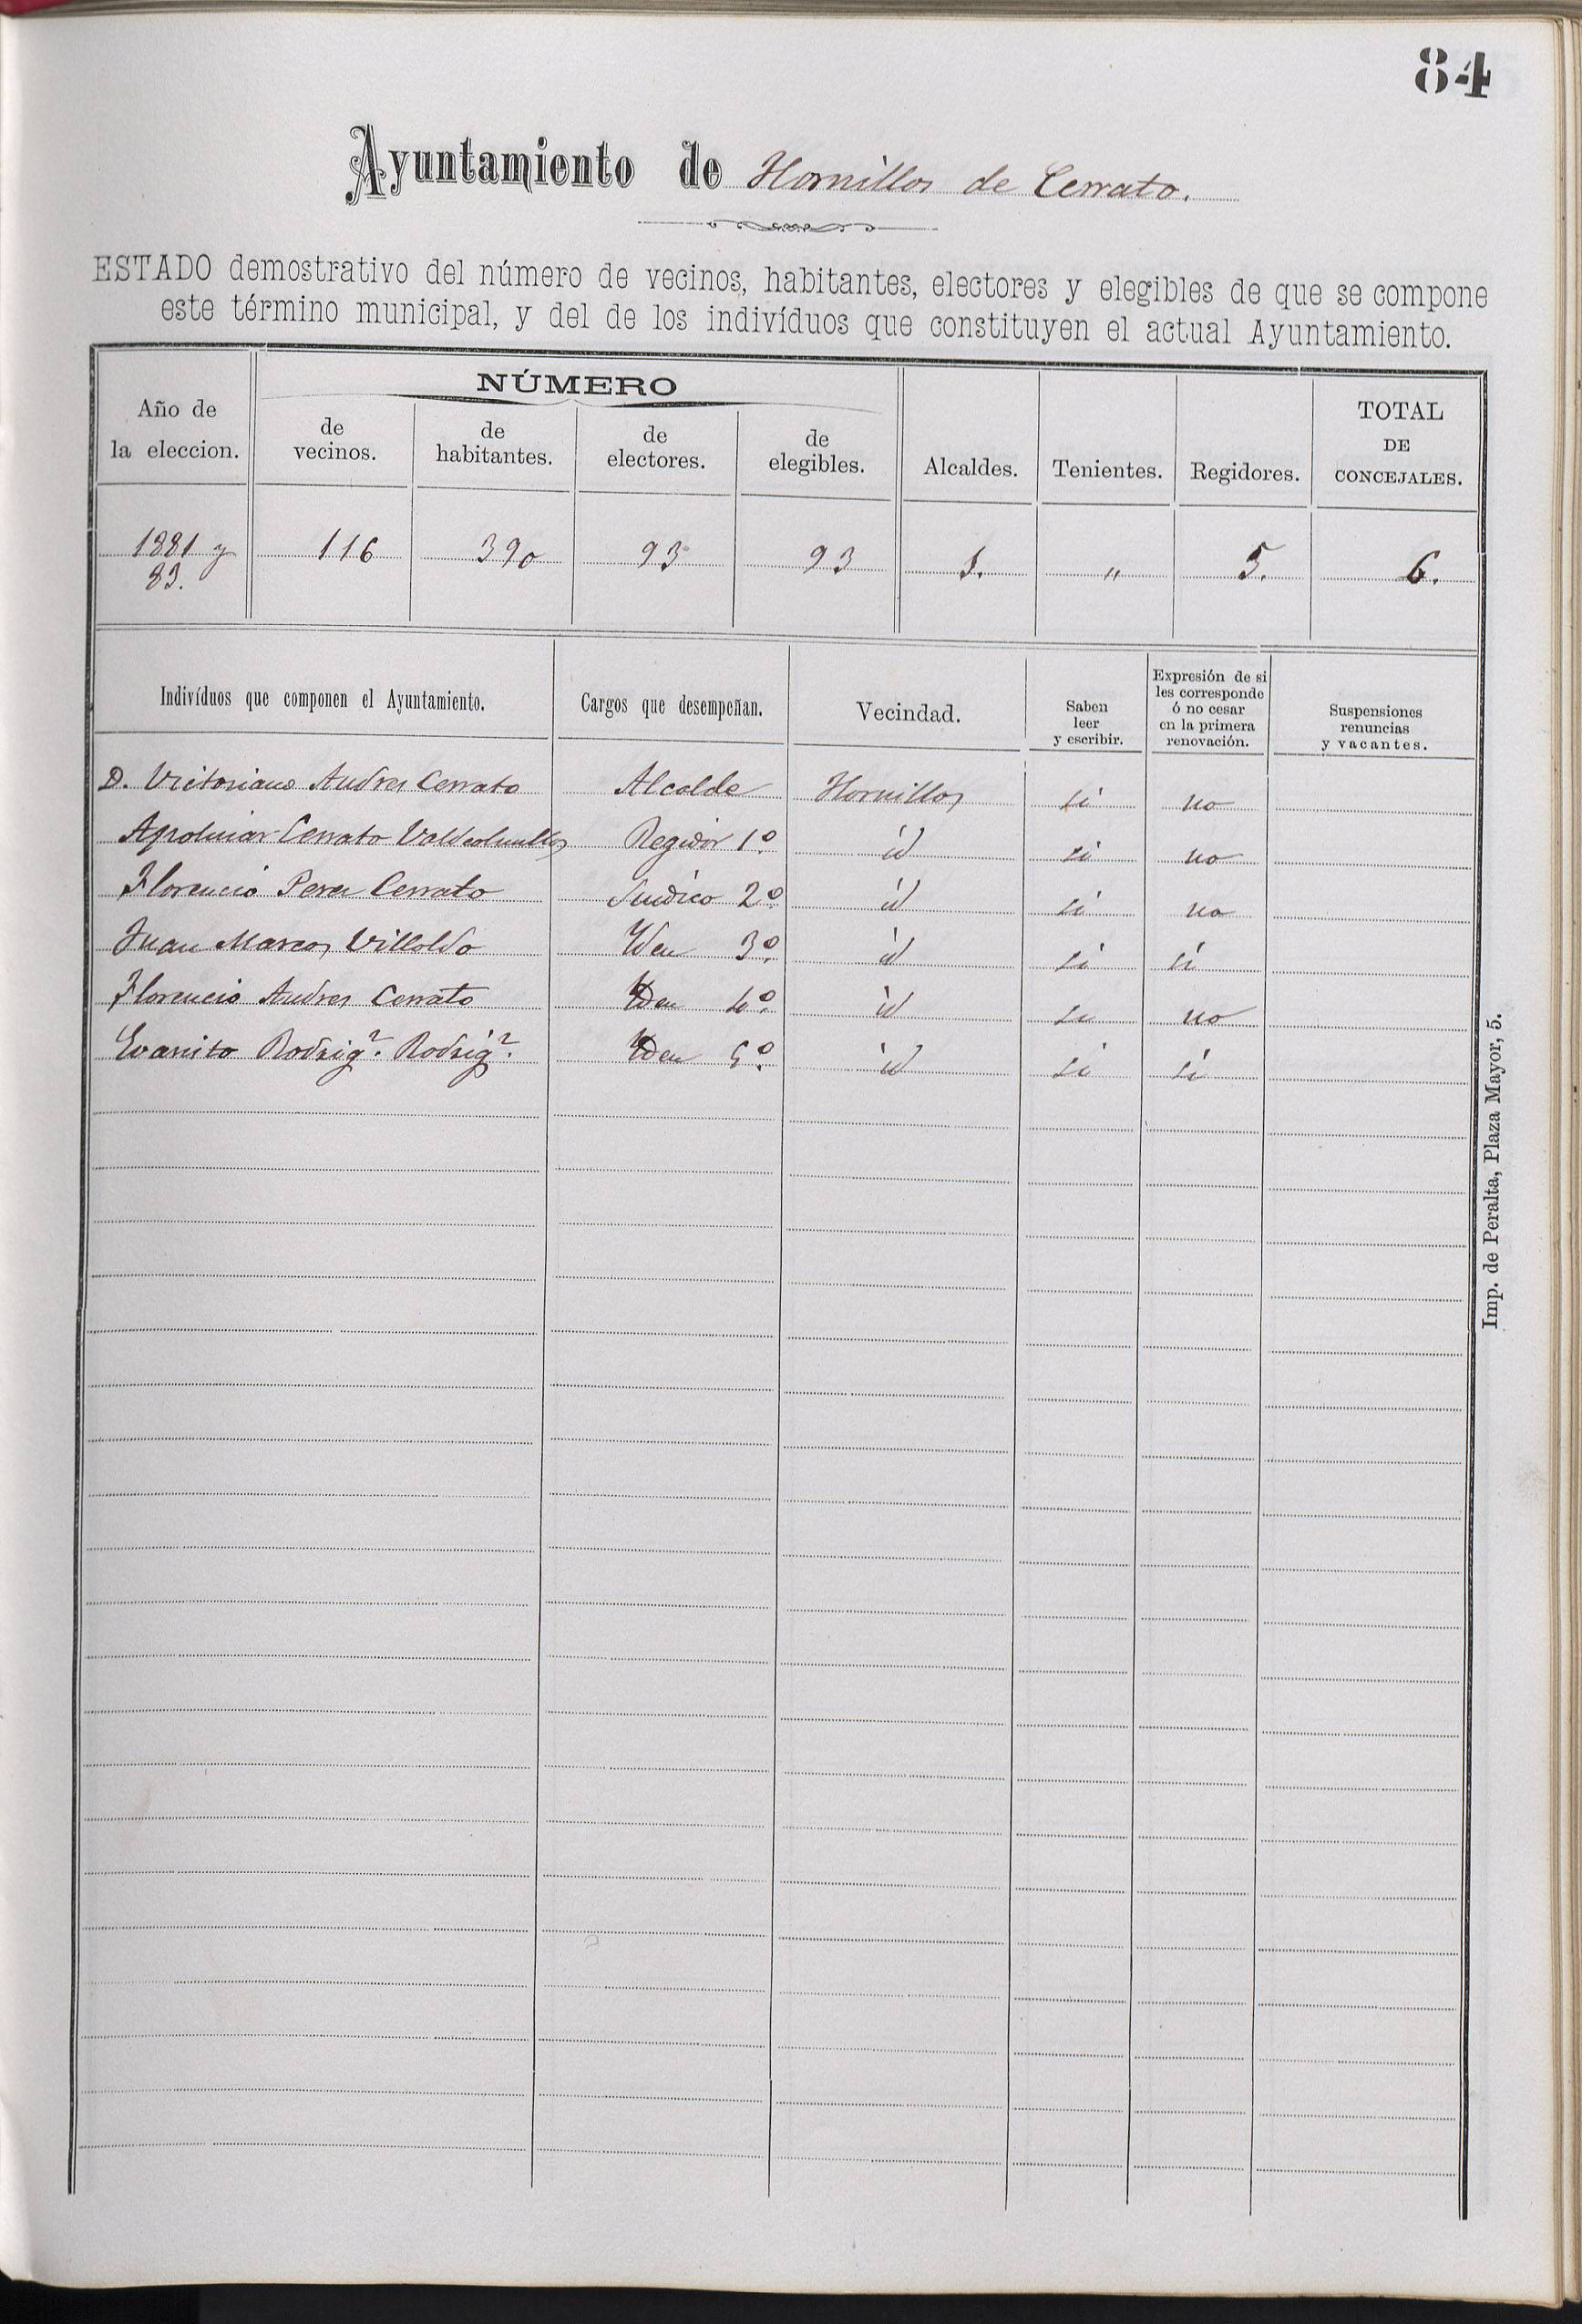 84
Ayuntamiento de Hornillos de Cerrato.
ESTADO demostrativo del número de vecinos, habitantes, electores y elegibles de que se compone
este término municipal, y del de los indivíduos que constituyen el actual Ayuntamiento.
Año de la eleccion.
NÚMERO
de vecinos.
de habitantes.
de electores.
de elegibles.
Alcaldes.
Tenientes.
Regidores.
TOTAL DE CONCEJALES.
1881 y 116 390 93 93 1. " 5. 6.
83.
Indivíduos que componen el Ayuntamiento.
Cargos que desempeñan.
Vecindad.
Saben leer y escribir.
Expresión de si les corresponde ó no cesar en la primera renovación.
Suspensiones renuncias y vacantes.
D. Victoriano Andres Cerrato Alcalde Hornillos si no
Apolinar Cerrato Regidor 1º id si no
Florencio Perez Cerrato Sindico 2º id si no
Juan Marcos Villoldo Iden 3º id si sí
Florencio Andres Cerrato Iden 4º id si no
Evaristo Rodrigz. Rodrigz. Iden 5º id si sí
Imp. de Peralta, Plaza Mayor, 5.